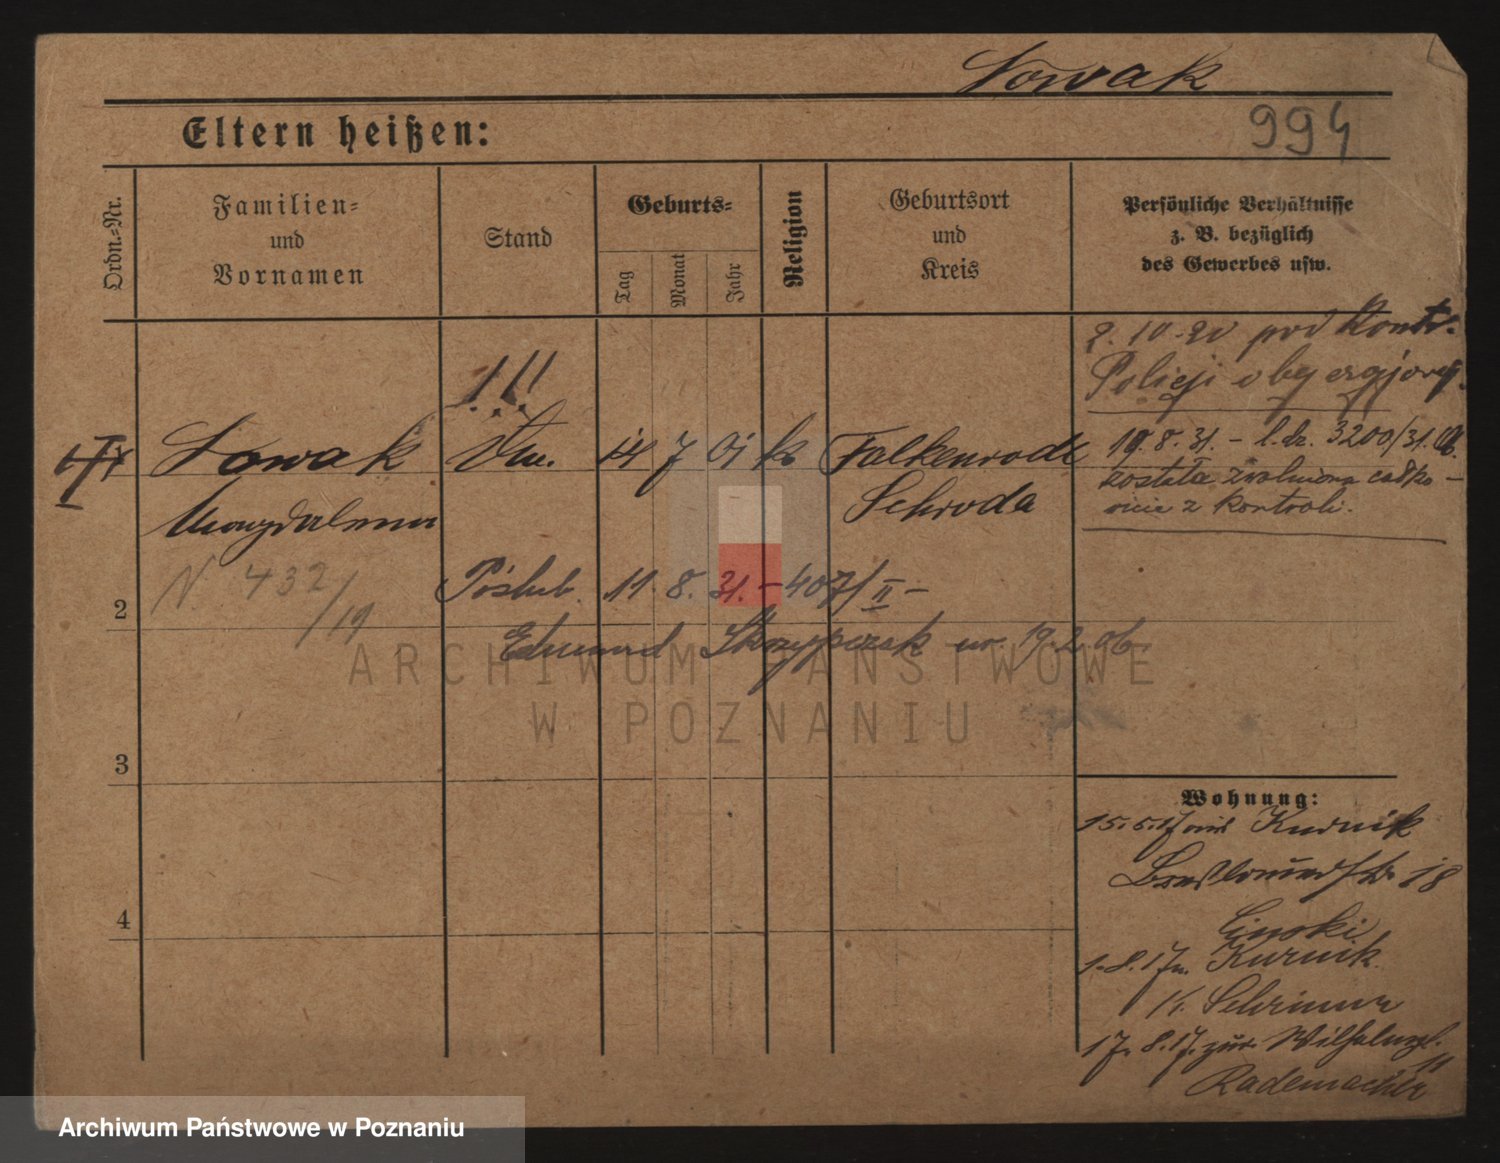 Nowak
994
Eltern heißen:
Ordn.-Nr.
Familien-
und
Vornamen
Stand
Geburts-
Tag
Monat
Jahr
Religion
Geburtsort
und
Kreis
Persönliche Verhältnisse
z. B. bezüglich
des Gewerbes usw.
2.10.20 pod Kontr.
Policji obyczajowej.
!!!
Nowak 14 7 01 k. Falkenrode
Magdalena Schroda
19.8.31. – l.dz. 3200/31.
została zwolniona całko-
wicie z kontroli.
N. 432/19
2
Poślub. 11.8.31. – 407/II –
Edmund Skrzypczak ur. 19.2.06.
3
4
Wohnung:
15.5.17 Kurnik
18
1.8.17 n. Kurnik
K. Schrimm
17.8.17. zur. Wilhelmpl.
11
Rademacher
ARCHIWUM PAŃSTWOWE
W POZNANIU
Archiwum Państwowe w Poznaniu